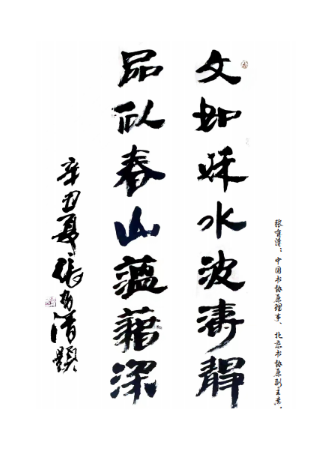 文如秋水波濤靜
品似春山蘊藉深
辛丑夏張有清題
张有清：中国书协原理事、北京书协原副主席。